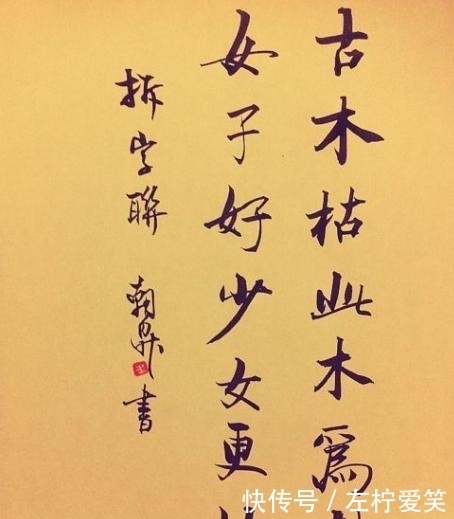 古木枯此木為
女子好少女更
拆字聯 朝鼎書
快传号 / 左柠爱笑